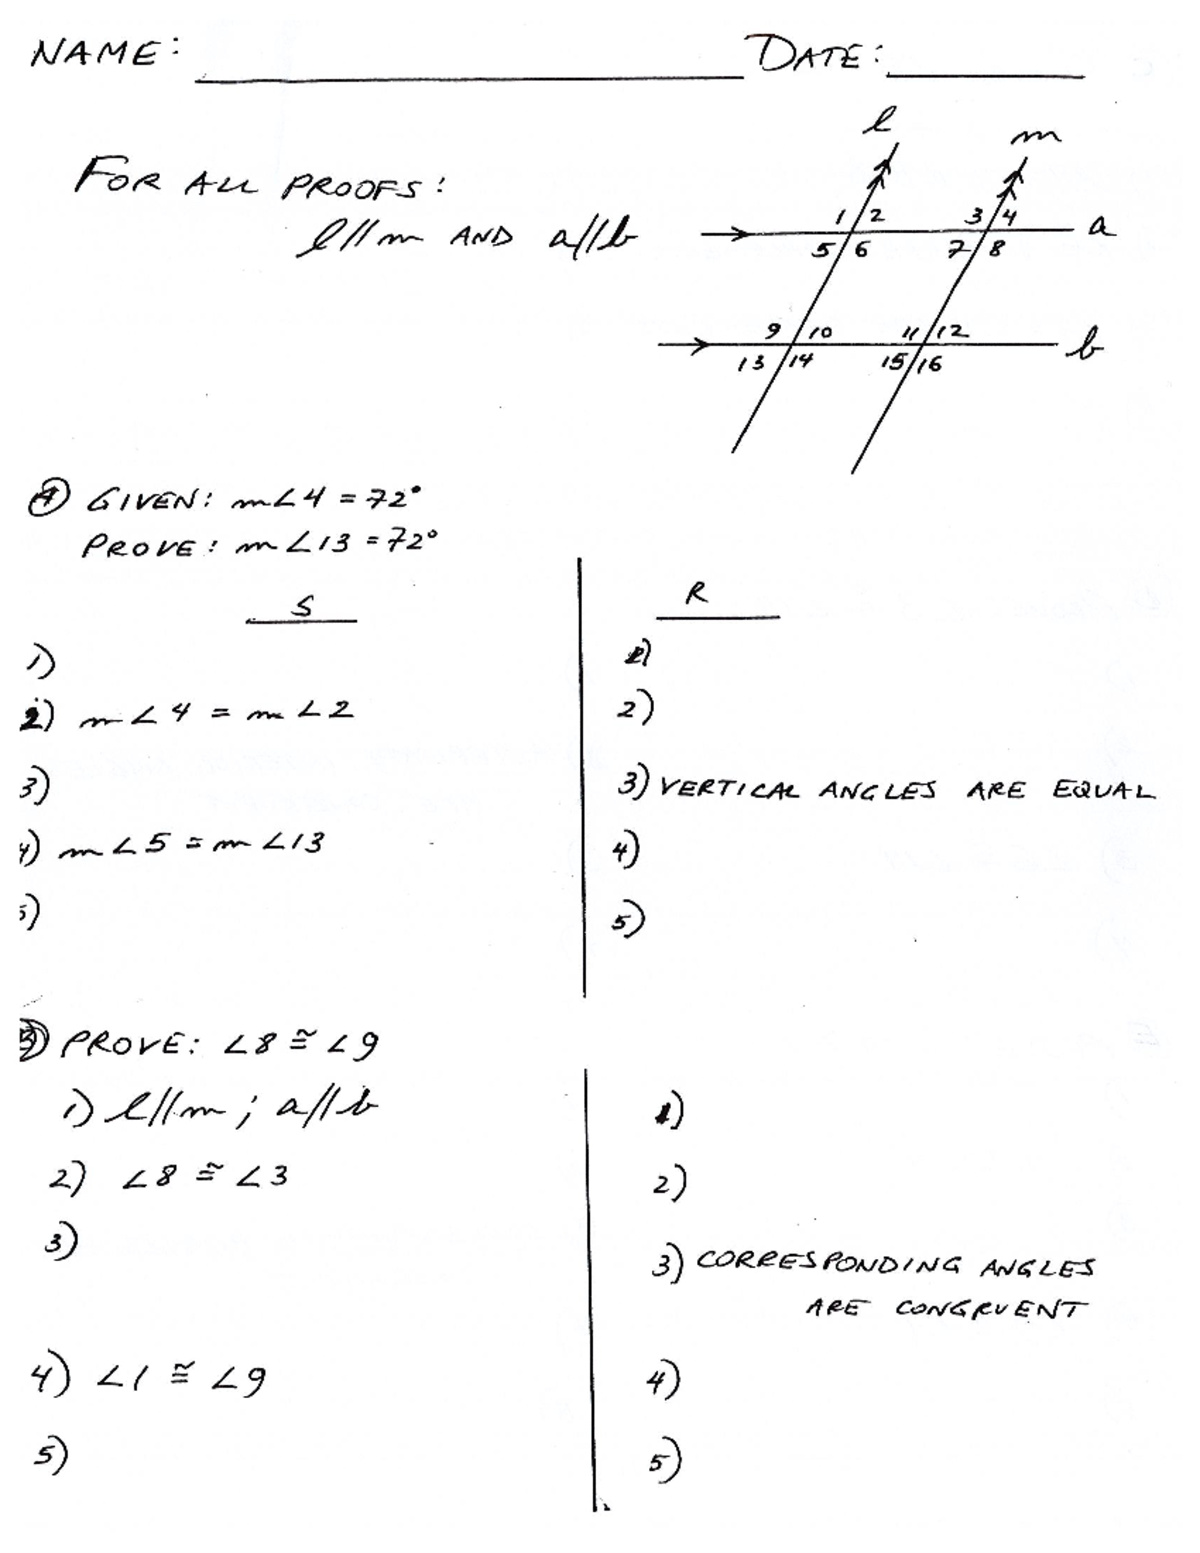 NAME: DATE:
l m
FOR ALL PROOFS:
l//m AND a//b
1 2 3 4 a
5 6 7 8
9 10 11 12 b
13 14 15 16
A GIVEN: m∠4 = 72°
PROVE: m∠13 = 72°
S R
1) 1)
2) m∠4 = m∠2 2)
3) 3) VERTICAL ANGLES ARE EQUAL
4) m∠5 = m∠13 4)
5) 5)
B PROVE: ∠8 ≅ ∠9
1) l//m ; a//b 1)
2) ∠8 ≅ ∠3 2)
3) 3) CORRESPONDING ANGLES
ARE CONGRUENT
4) ∠1 ≅ ∠9 4)
5) 5)